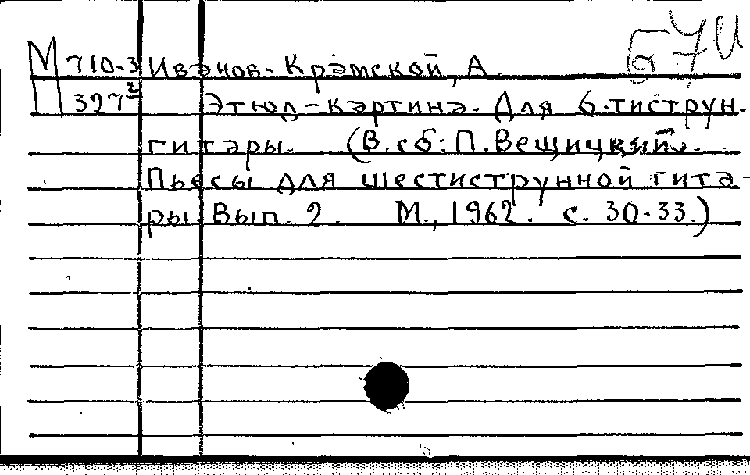 М 710-3 Иванов-Крамской, А.
П 397² Этюд-картина. Для 6-тиструн.
гитары. (В сб: П. Вещицкий.
Пьесы для шестиструнной гита-
ры Вып. 2. М., 1962. с. 30-33.)